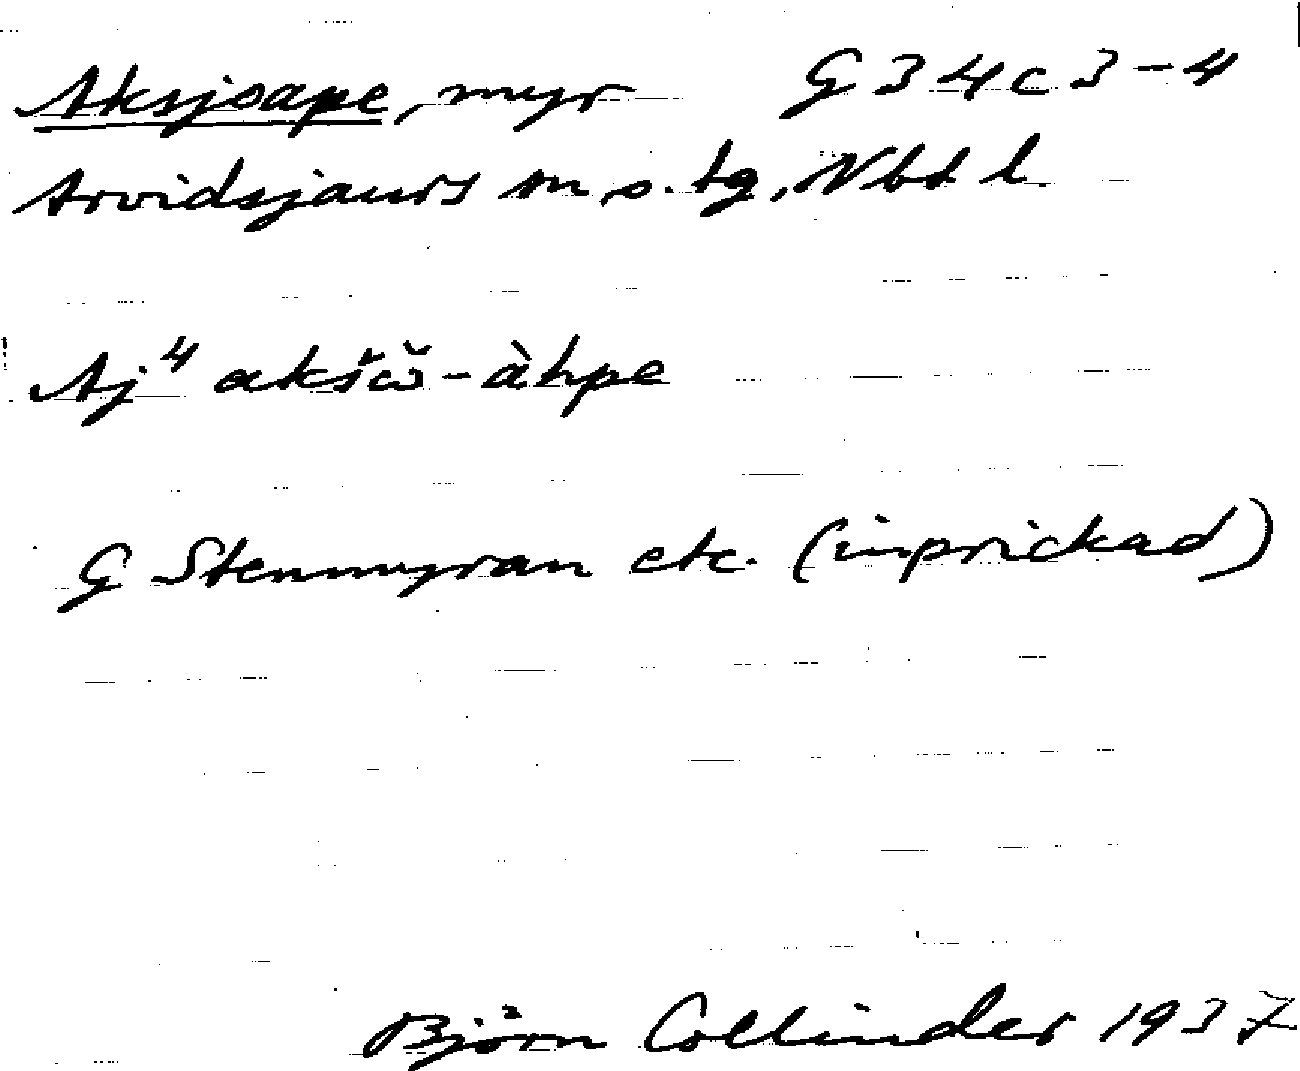 Aksjoape, myr G 34c3-4
Arvidsjaurs sn, s. tg, Nbtl.
Aj⁴ akšω̆-àhpe
G Stenmyran etc. (inprickad)
Björn Collinder 1937